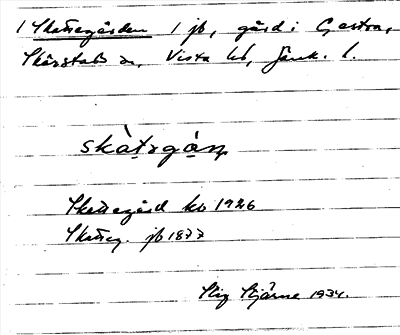 1 Skattegården 1 jb, gård i Gastra,
Skärstads sn, Vista hd, Jönk. l.
skàtrgán
Skattegård kb 1926
Skatteg. jb 1877
Stig Stjärne 1934.